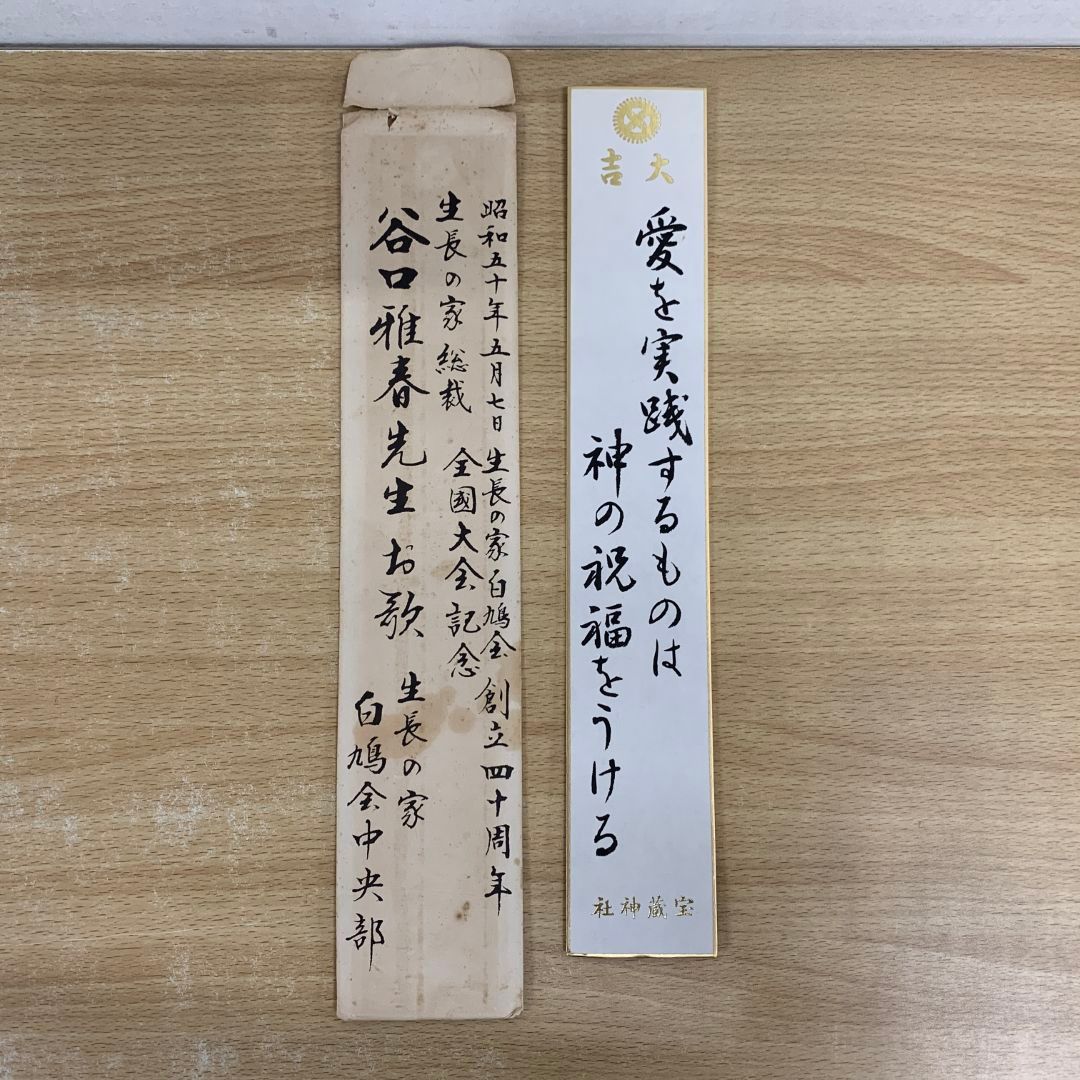 昭和五十年五月七日 生長の家白鳩会 創立四十周年
全國大会記念
生長の家 総裁
谷口雅春先生お歌
生長の家
白鳩会中央部
大吉
愛を実践するものは
神の祝福をうける
宝蔵神社